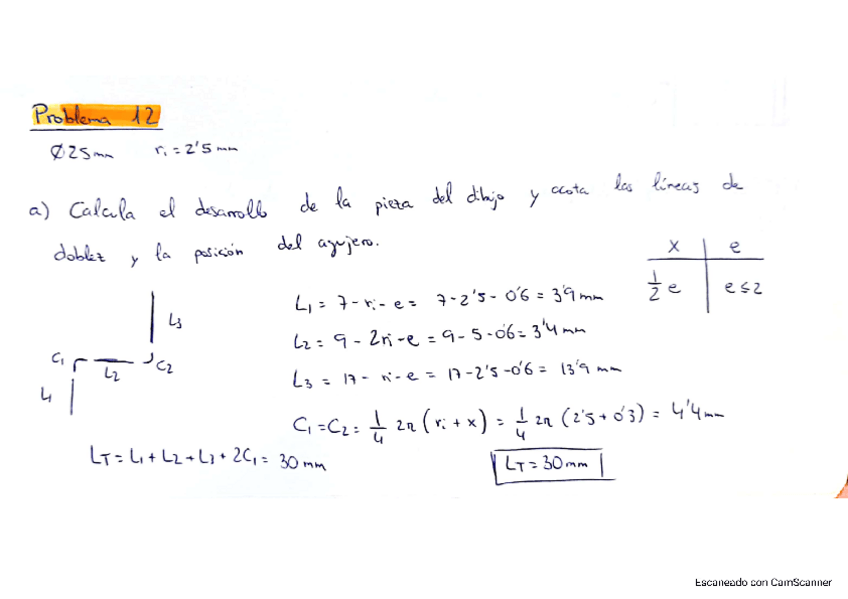 Problema 12
Ø25mm ri = 2'5mm
a) Calcula el desarrollo de la pieza del dibujo y acota las líneas de
doblez y la posición del agujero.
x e
1/2 e e≤2
L1 = 7 - ri - e = 7 - 2'5 - 0'6 = 3'9 mm
L2 = 9 - 2ri - e = 9 - 5 - 0'6 = 3'4 mm
L3 = 17 - ri - e = 17 - 2'5 - 0'6 = 13'9 mm
L3
C1 L2 C2
L1
C1 = C2 = 1/4 2π (ri + x) = 1/4 2π (2'5 + 0'3) = 4'4 mm
LT = L1 + L2 + L3 + 2C1 = 30 mm
LT = 30 mm
Escaneado con CamScanner